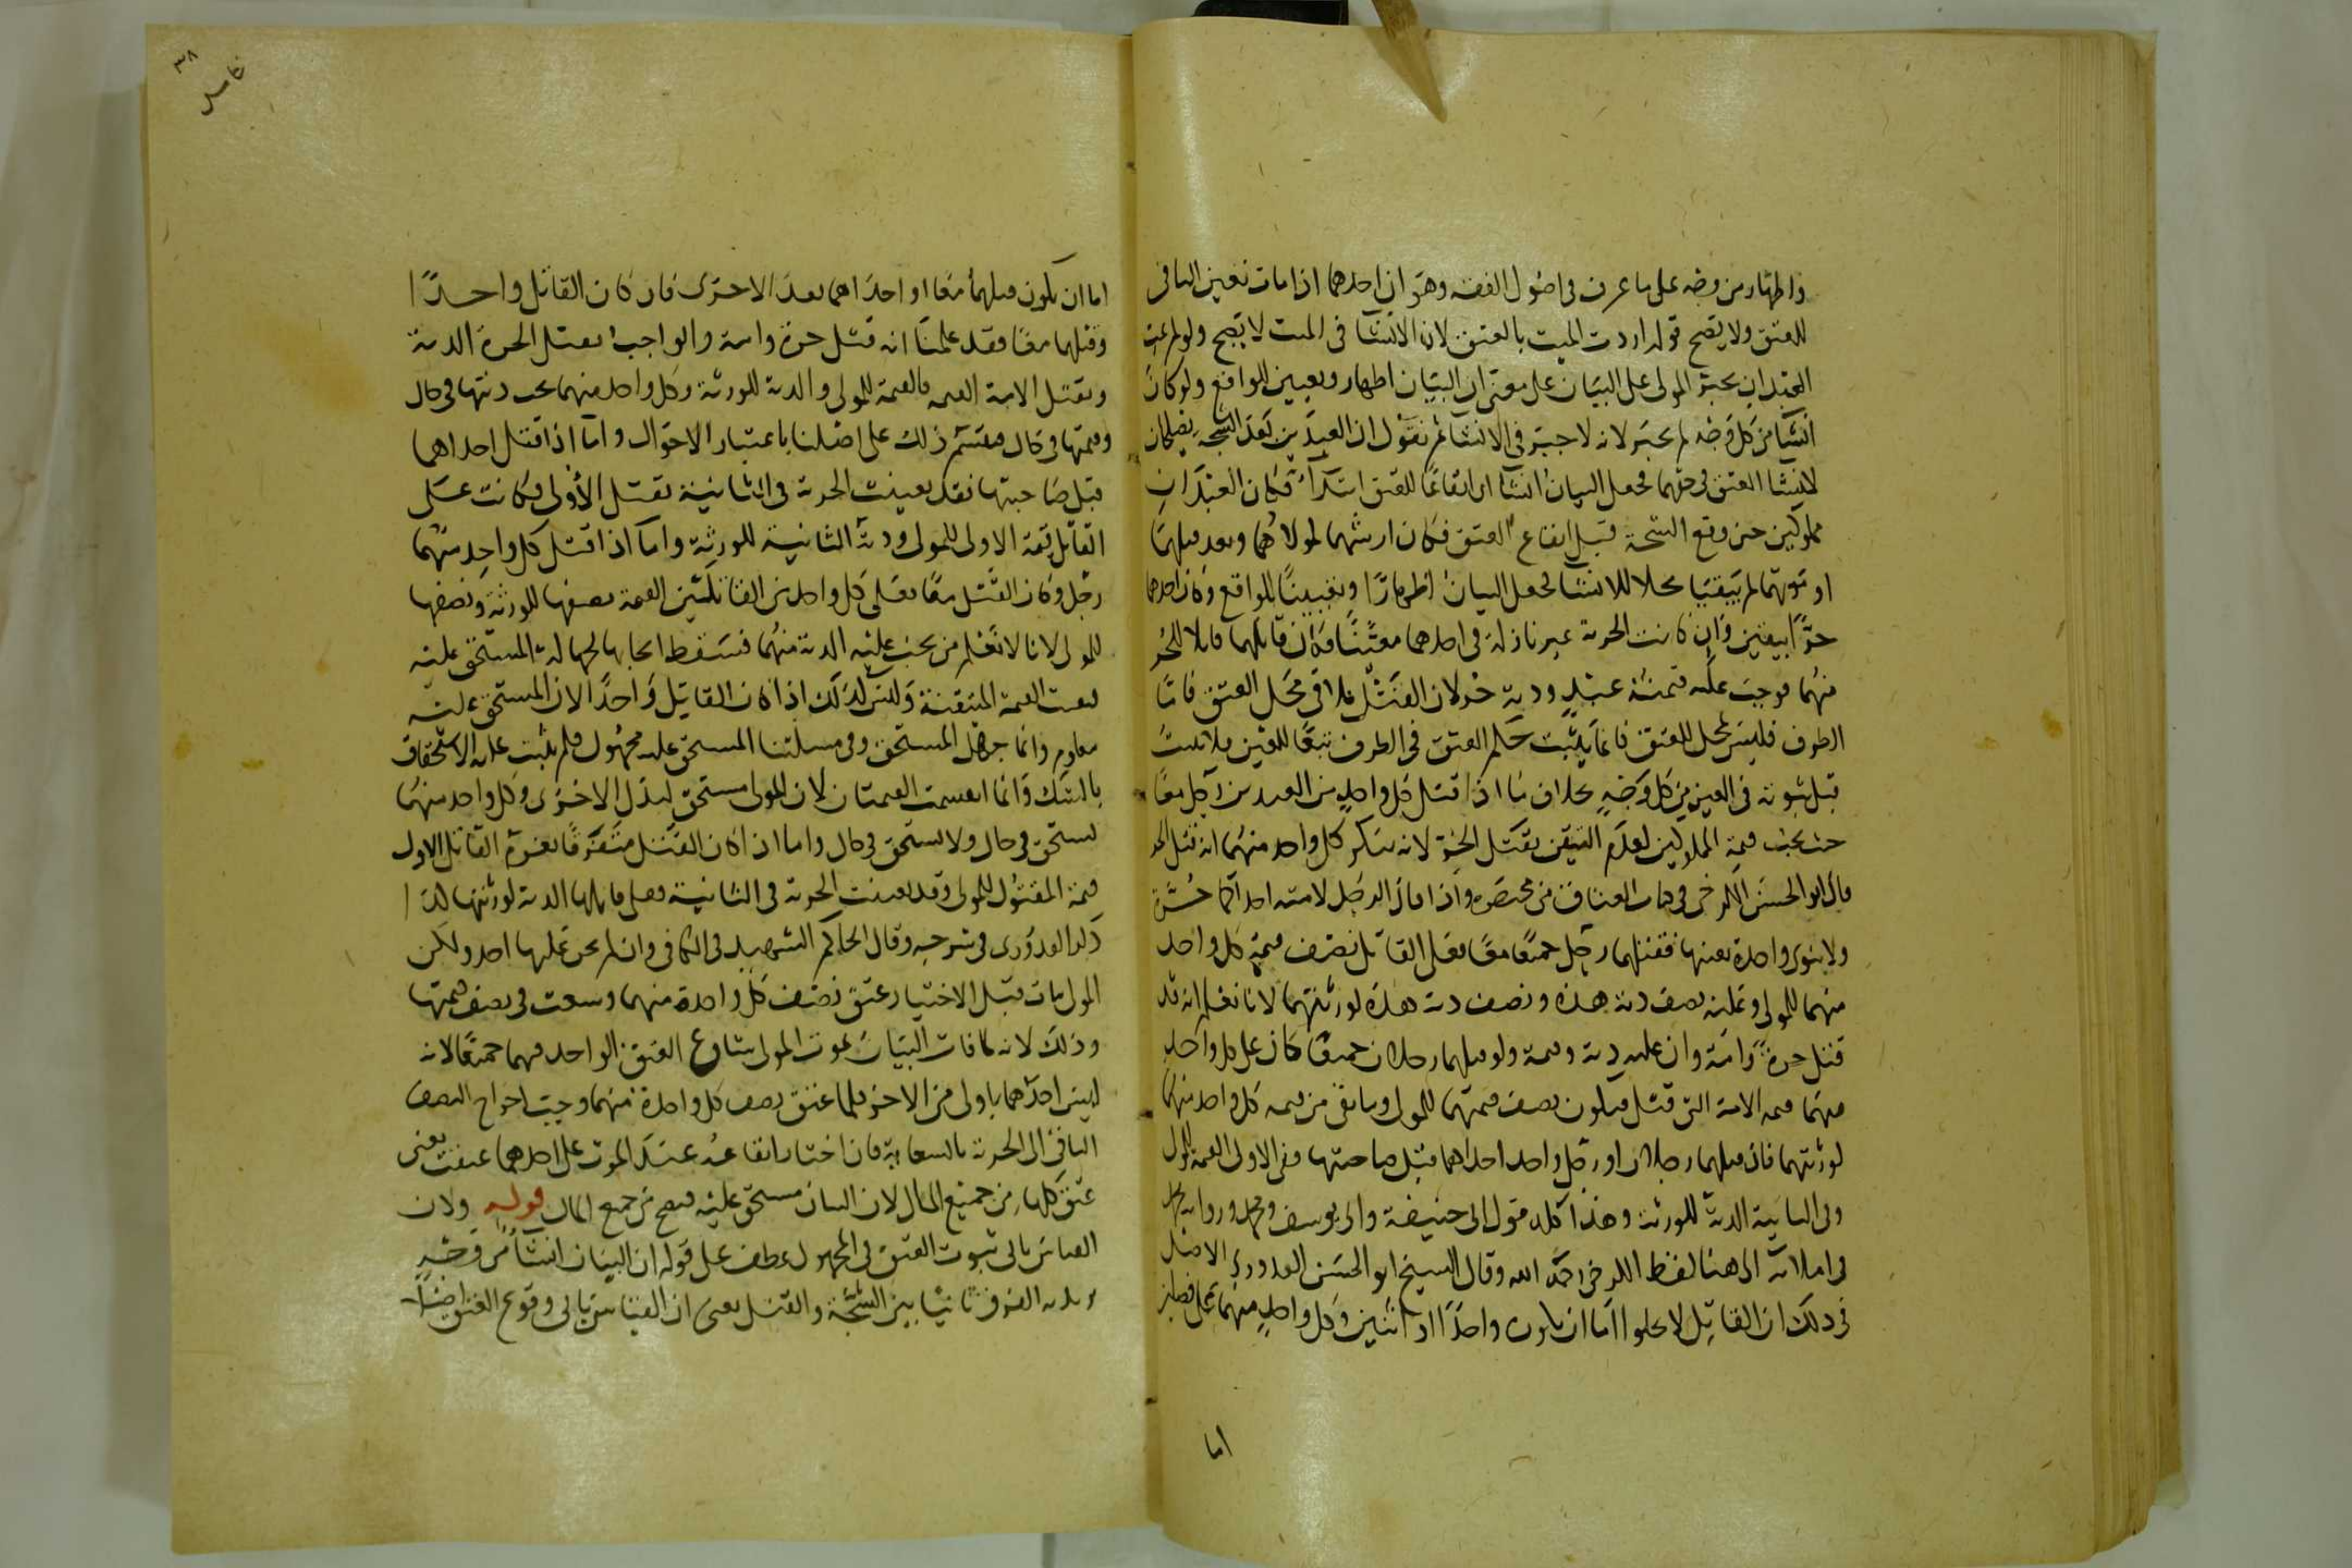 واظهار من وجه على ما عرف في اصول الفقه وهو ان احدهما اذا مات تعين الباقي
للعتق ولا يصح قوله اردت الميت بالعتق لان الانشا في الميت لا يصح ولو لم يمت
العبدان يجبر المولى على البيان على معنى ان البيان اظهار وتعيين للواقع ولو كان
انشا من كل وجه لم يجبر لانه لا جبر في الانشا ثم نقول ان العبدين بعد الشجه يصلحان
لانشا العتق في حقهما فجعل البيان انشا اي ايقاعا للعتق ابتدآء فكان العبدان
مملوكين حين وقع الشجة قبل ايقاع العتق فكان ارشهما لمولاهما وبعد قتلهما
او موتهما لم يبقيا محلا للانشا فجعل البيان اظهارا وتعيينا للواقع وكان احدهما
حرا بيقين وان كانت الحرية غير نازلة في احدهما معينا فكان قاتلهما قاتلا للحر
منهما فوجب عليه قيمة عبد ودية حر لان القتل يلاقي محل العتق فاما
الطرف فليس بمحل للعتق فانما يثبت حكم العتق في الطرف تبعا للعين فلا يثبت
قبل ثبوته في العين من كل وجه بخلاف ما اذا قتل كل واحد من العبدين رجل معا
حيث يجب قيمة المملوكين لعدم التيقن بقتل الحر لانه ينكر كل واحد منهما انه قتل الحر
قال ابو الحسن الكرخي في كتاب العتاق من مختصره واذا قال الرجل لامتيه احداكما حرة
ولا ينوى واحدة بعينها فقتلهما رجل جميعا معا فعلى القاتل نصف قيمة كل واحد
منهما للمولى وعليه نصف دية هذه ونصف دية هذه لورثتهما لانا نعلم انه قد
قتل حرة وامة وان عليه دية وقيمة ولو قتلهما رجلان جميعا كان على كل واحد
منهما قيمه الامة التي قتل فيكون نصف قيمتهما للمولى وما بقى من قيمه كل واحد منهما
لورثتهما فان قتلهما رجلان او رجل واحد احداهما قبل صاحبتها ففي الاولى القيمة للمولى
وفي الثانية الدية للورثة وهذا كله قول ابي حنيفة وابي يوسف ومحمد ورواية محمد
في املائه الى هنا لفظ الكرخي رحمه الله وقال الشيخ ابو الحسين القدوري الاصل
في ذلك ان القاتل لا يخلوا اما ان يكون واحدا او اثنين وكل واحد منهما على فصلين
اما
اما ان يكون قتلهما معا او احداهما بعد الاخرى فان كان القاتل واحدا
وقتلهما معا فقد علمنا انه قتل حرة وامة والواجب بقتل الحرة الدية
وبقتل الامة القيمه فالقيمة للمولى والدية للورثة وكل واحد منهما يجب ديتها في حال
وقيمتها في حال فيقسم ذلك على اصلنا باعتبار الاحوال واما اذا قتل احداهما
قبل صاحبتها فقد تعينت الحرية في الثانية بقتل الاولى فكانت على
القاتل قيمة الاولى للمولى ودية الثانية للورثة واما اذا قتل كل واحد منهما
رجل وكان القتل معا فعلى كل واحد من القاتلين القيمة نصفها للورثة ونصفها
للمولى لانا لا نعلم من يجب عليه الدية منهما فسقط ايجابها لجهالة المستحق عليه
فبقيت القيمة المتيقنة وليس كذلك اذا كان القاتل واحدا لان المستحق عليه
معلوم وانما جهل المستحق وفي مسئلتنا المستحق عليه مجهول فلم يثبت عليه الاستحقاق
بالشك وانما انقسمت القيمتان لان المولى مستحق لبدل الاخرى وكل واحد منهما
يستحق في حال ولا يستحق في حال واما اذا كان القتل متفرقا يغرم القاتل الاول
قيمة المقتول للمولى وقد تعينت الحرية في الثانية فعلى قاتلها الدية لورثتها كذا
ذكر القدوري في شرحه وقال الحاكم الشهيد في الكافي وان لم يجن عليها احد ولكن
المولى مات قبل الاختيار عتق نصف كل واحدة منهما وسعت في نصف قيمتها
وذلك لانه لما فات البيان بموت المولى شاع العتق الواحد فيهما جميعا لانه
ليس احداهما باولى من الاخرى فلما عتق نصف كل واحدة منهما وجب اخراج النصف
الباقي الى الحرية بالسعاية فان اختار ايقاعه عند الموت على احدهما عتقت يعني
عتق كلها من جميع المال لان البيان مستحق عليه فيصح من جميع المال قوله ولان
القياس يابى ثبوت العتق في المجهول عطف على قوله ان البيان انشا من وجه
الفرق ثانيا بين الشجة والقتل يعني ان القياس يابى وقوع العتق اصلا